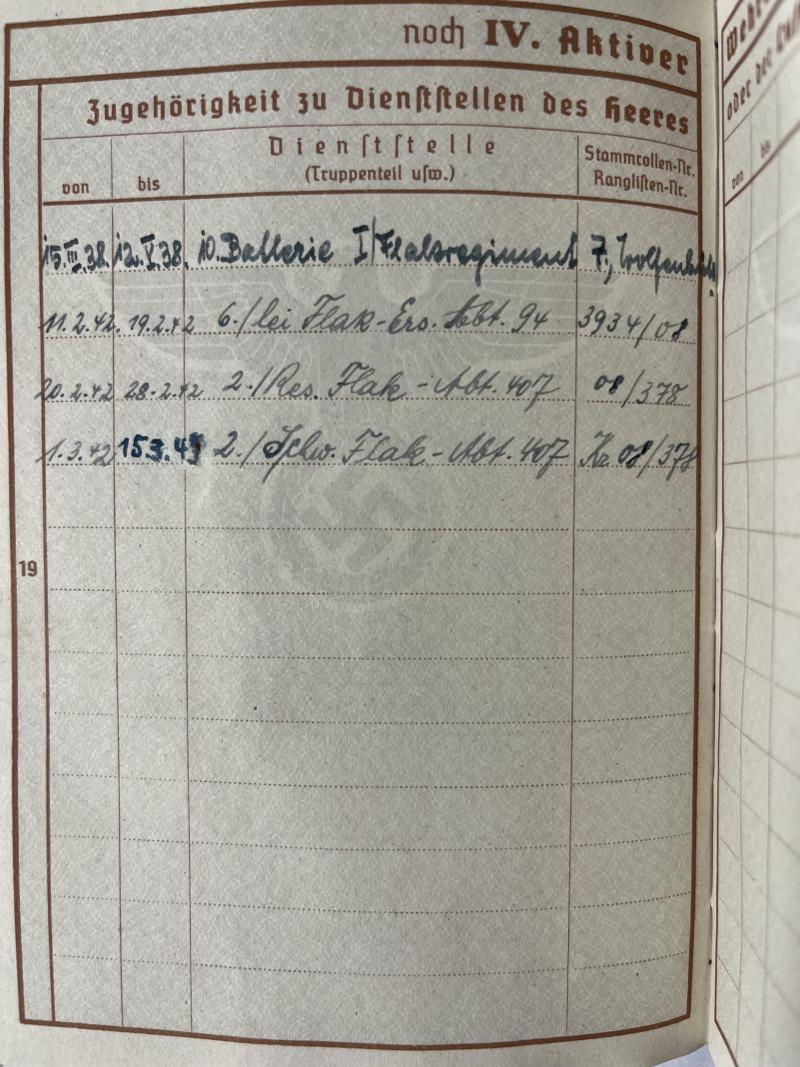 noch IV. Aktiver
Zugehörigkeit zu Dienststellen des Heeres
von
bis
Dienststelle
(Truppenteil usw.)
Stammrollen-Nr.
Ranglisten-Nr.
15.III.38. 12.V.38. 10. Batterie I/Flakregiment 7, Wolfenbütt
11.2.42. 19.2.42 6./lei Flak-Ers. Abt. 94 3934/08
20.2.42 28.2.42 2./Res. Flak-Abt. 407 08/378
1.3.42 2./Schw. Flak-Abt. 407 Kr 08/378
19
oder der
von
bis